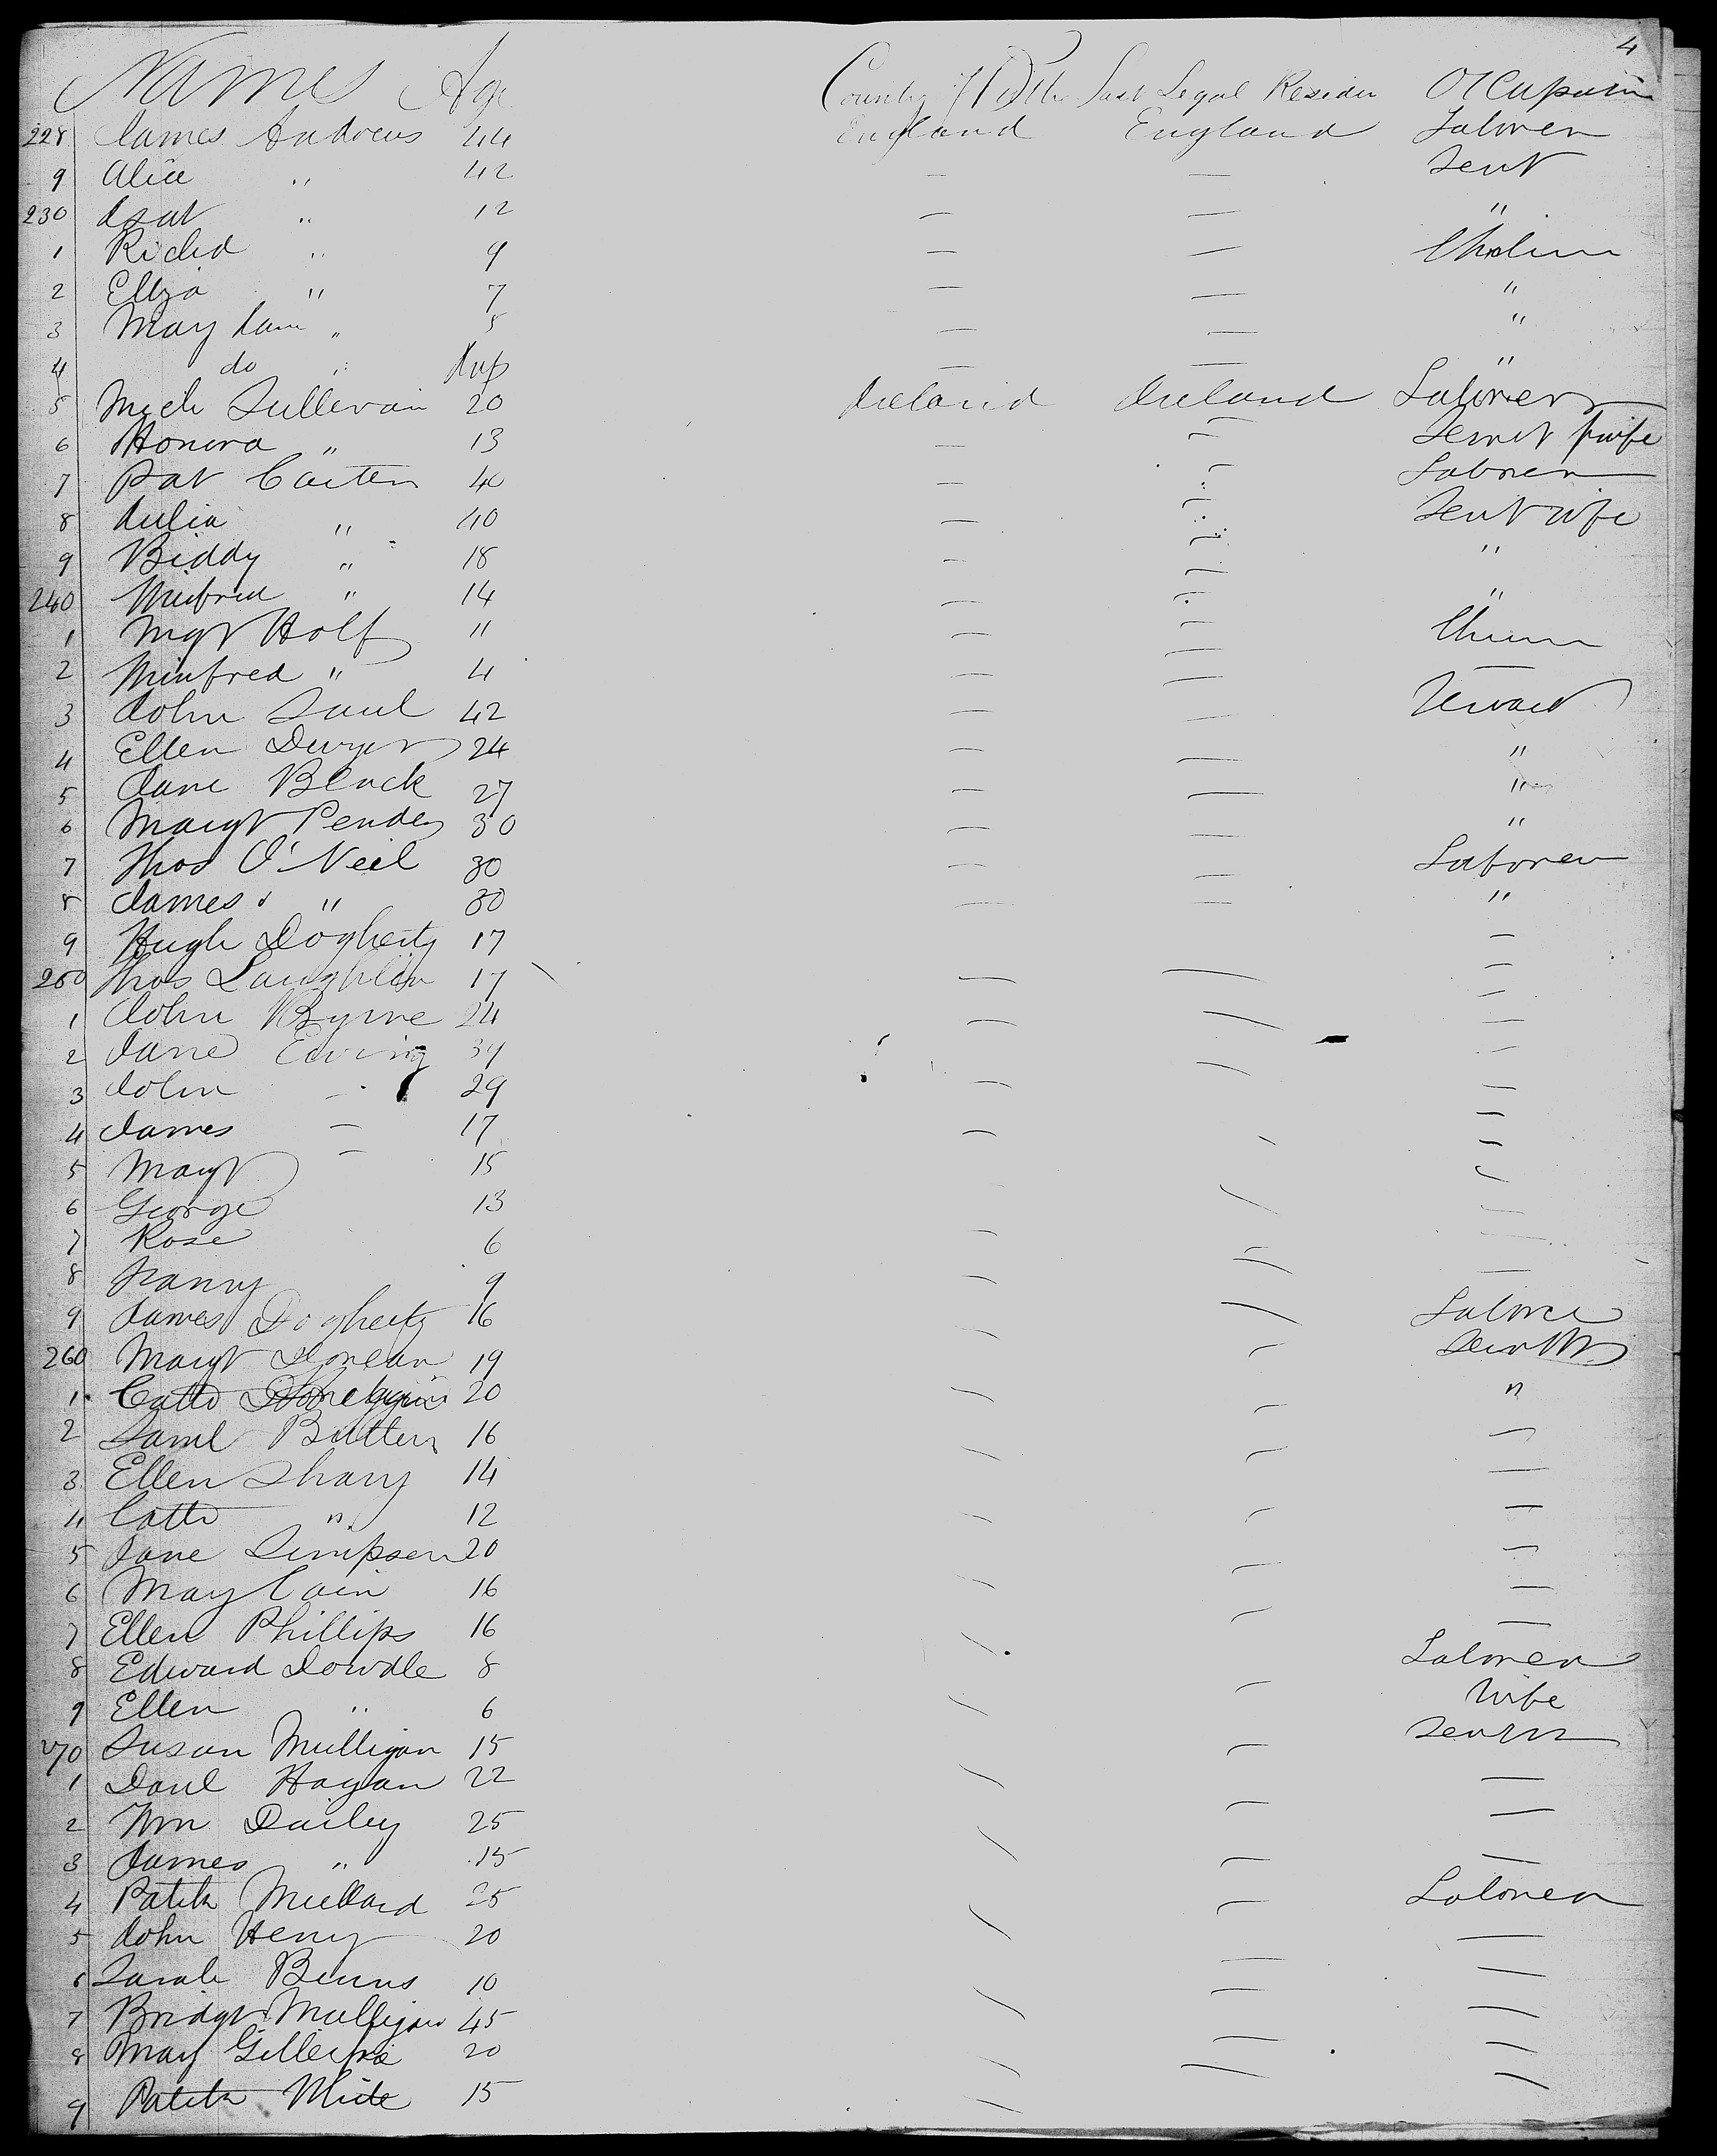 4
Names Age Country of Birth Last Legal Residen Occupation
228 James Andrews 44 England England Laborer
9 Alice " 42 — — Servt
230 " 12 — — "
1 Richd " 9 — —
2 Eliza " 7 — — "
3 Mary Jane " 5 — — "
4 do " — — "
5 Mich Sullivan 20 Ireland Ireland Laborer
6 Honora " 13 — — Servt wife
7 Pat 40 — — Laborer
8 Julia " 40 — — Servt wife
9 Biddy " 18 — — "
240 Winifred " 14 — — "
1 Mgt Holf 11 — —
2 Winifred " 4 — — —
3 John Saul 42 — —
4 Ellen Dwyer 24 — — "
5 Jane Black 27 — — "
6 Margt Pender 30 — — "
7 Thos O'Neil 30 — — Laborer
8 James " 30 — — "
9 Hugh Dogherty 17 —
250 Thos Laughlin 17 — — —
1 John Byrne 24 — — —
2 Jane Ewing 39 — —
3 John — 29 — — —
4 James — 17 — — —
5 Margt — 15 — —
6 George 13 — —
7 Rose 6 — —
8 Nanny 9 — — —
9 James Dogherty 16 — — Laborer
260 Margt 19 — —
1 Catte 20 — — "
2 Saml 16 — — —
3 Ellen 14 — — —
4 Catte " 12 — — —
5 Jane Simpson 20 — — —
6 Mary Cain 16 — — —
7 Ellen Phillips 16 — — —
8 Edward Dowdle 8 — Laborer
9 Ellen " 6 — — Wife
270 Susan Mulligan 15 —
1 Danl Hagan 22 — — —
2 Wm Dailey 25 — — —
3 James " 15 — — —
4 Patck 25 — — Laborer
5 John Henry 20 — — —
6 Sarah Burns 10 — —
7 Bridgt Mulligan 45 — — —
8 Mary Gillespie 20 — — —
9 Patck 15 — —